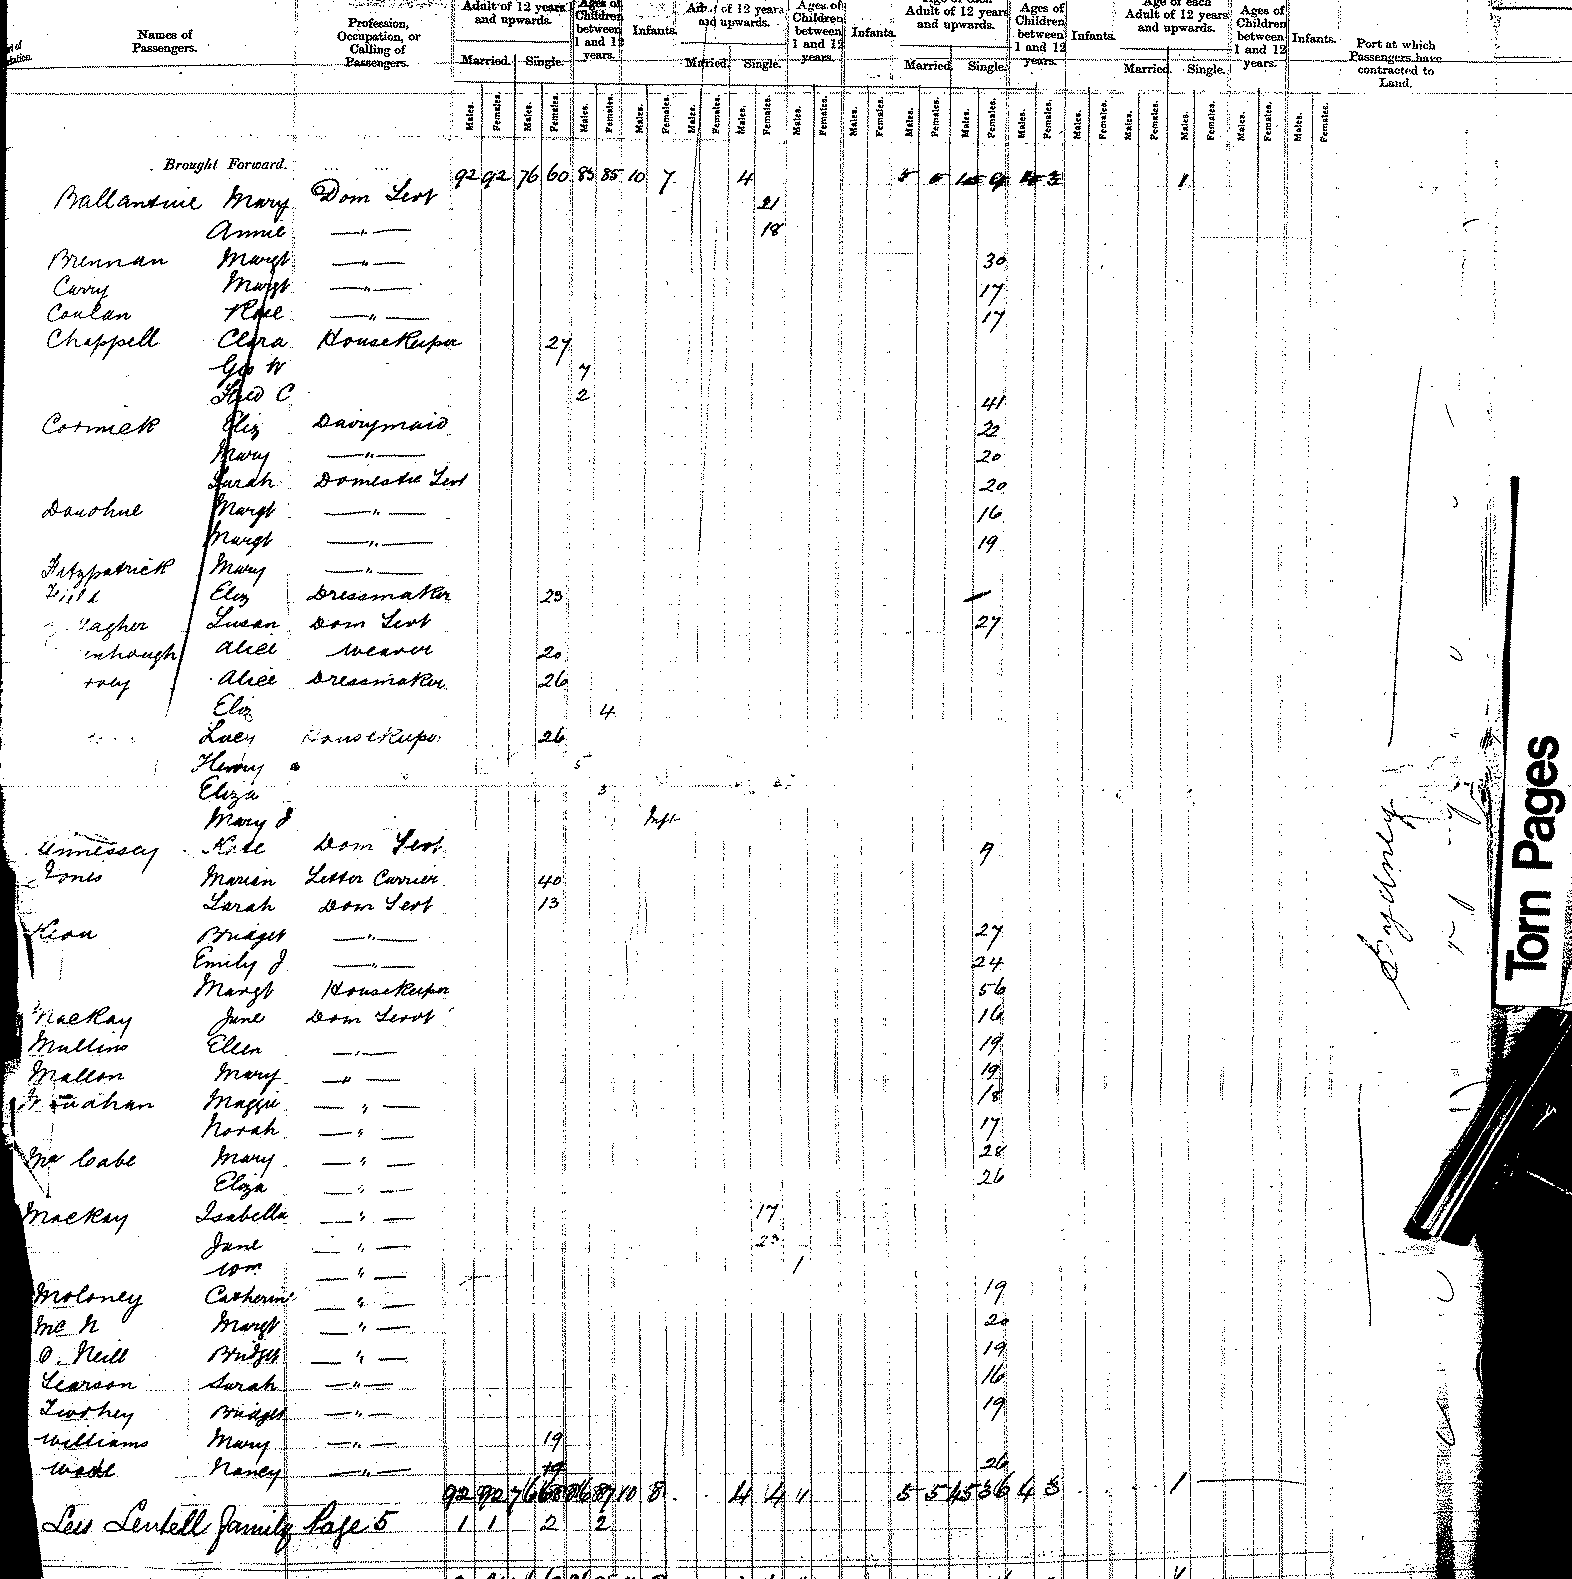 Names of Passengers.
Profession, Occupation, or Calling of Passengers.
Adult of 12 years and upwards.
Ages of Children between 1 and 12 years.
Infants.
and upwards.
Ages of Children between 1 and 12 years.
Infants.
Adult of 12 years and upwards.
Ages of Children between 1 and 12 years.
Infants.
Age of each Adult of 12 years and upwards.
Ages of Children between 1 and 12 years.
Infants.
Port at which Passengers have contracted to Land.
Married. Single. Married. Single. Married. Single. Married. Single.
Males. Females. Males. Females. Males. Females. Males. Females. Males. Females. Males. Females. Males. Females. Males. Females. Males. Females. Males. Females. Males. Females. Males. Females. Males. Females. Males. Females. Males. Females. Males. Females.
Brought Forward. 92 92 76 60 85 85 10 7 4 1
Ballantine Mary Dom Servt 21
Annie —"— 18
Brennan Margt —"— 30
Curry Margt —"— 17
Conlan Rose —"— 17
Chappell Clara Housekeeper 27
Geo W 7
Fred C 2
41
Cormick Eliz Dairymaid 22
Mary —"— 20
Sarah Domestic Servt 20
Donohue Margt —"— 16
Margt —"— 19
Fitzpatrick Mary —"—
Field Eliz Dressmaker 23
agher Susan Dom Servt 27
enhough Alice Weaver 20
Alice Dressmaker 26
Eliz 4
Lucy Housekeeper 26
Henry 5
Eliza 3
Mary J Inft
ennessey Kate Dom Servt 9
Jones Marian Letter Carrier 40
Sarah Dom Servt 13
Kean Bridget —"— 27
Emily J —"— 24
Margt Housekeeper 56
MacKay Jane Dom Servt 16
Mullins Ellen —"— 19
Mallon Mary —"— 19
Maggie —"— 18
Norah —"— 17
McCabe Mary —"— 28
Eliza —"— 26
MacKay Isabella —"— 17
Jane —"— 23
Wm —"— 1
Moloney Catherine —"— 19
Mc N Margt —"— 20
O. Neill Bridget —"— 19
Searson Sarah —"— 16
Twohey Bridget —"— 19
Williams Mary —"— 19
Wade Nancy —"— 26
92 92 76 68 86 87 10 8 4 4 5 5 45 36 4 3 1
Lentell Family Page 5 1 1 2 2
Sydney
Torn Pages